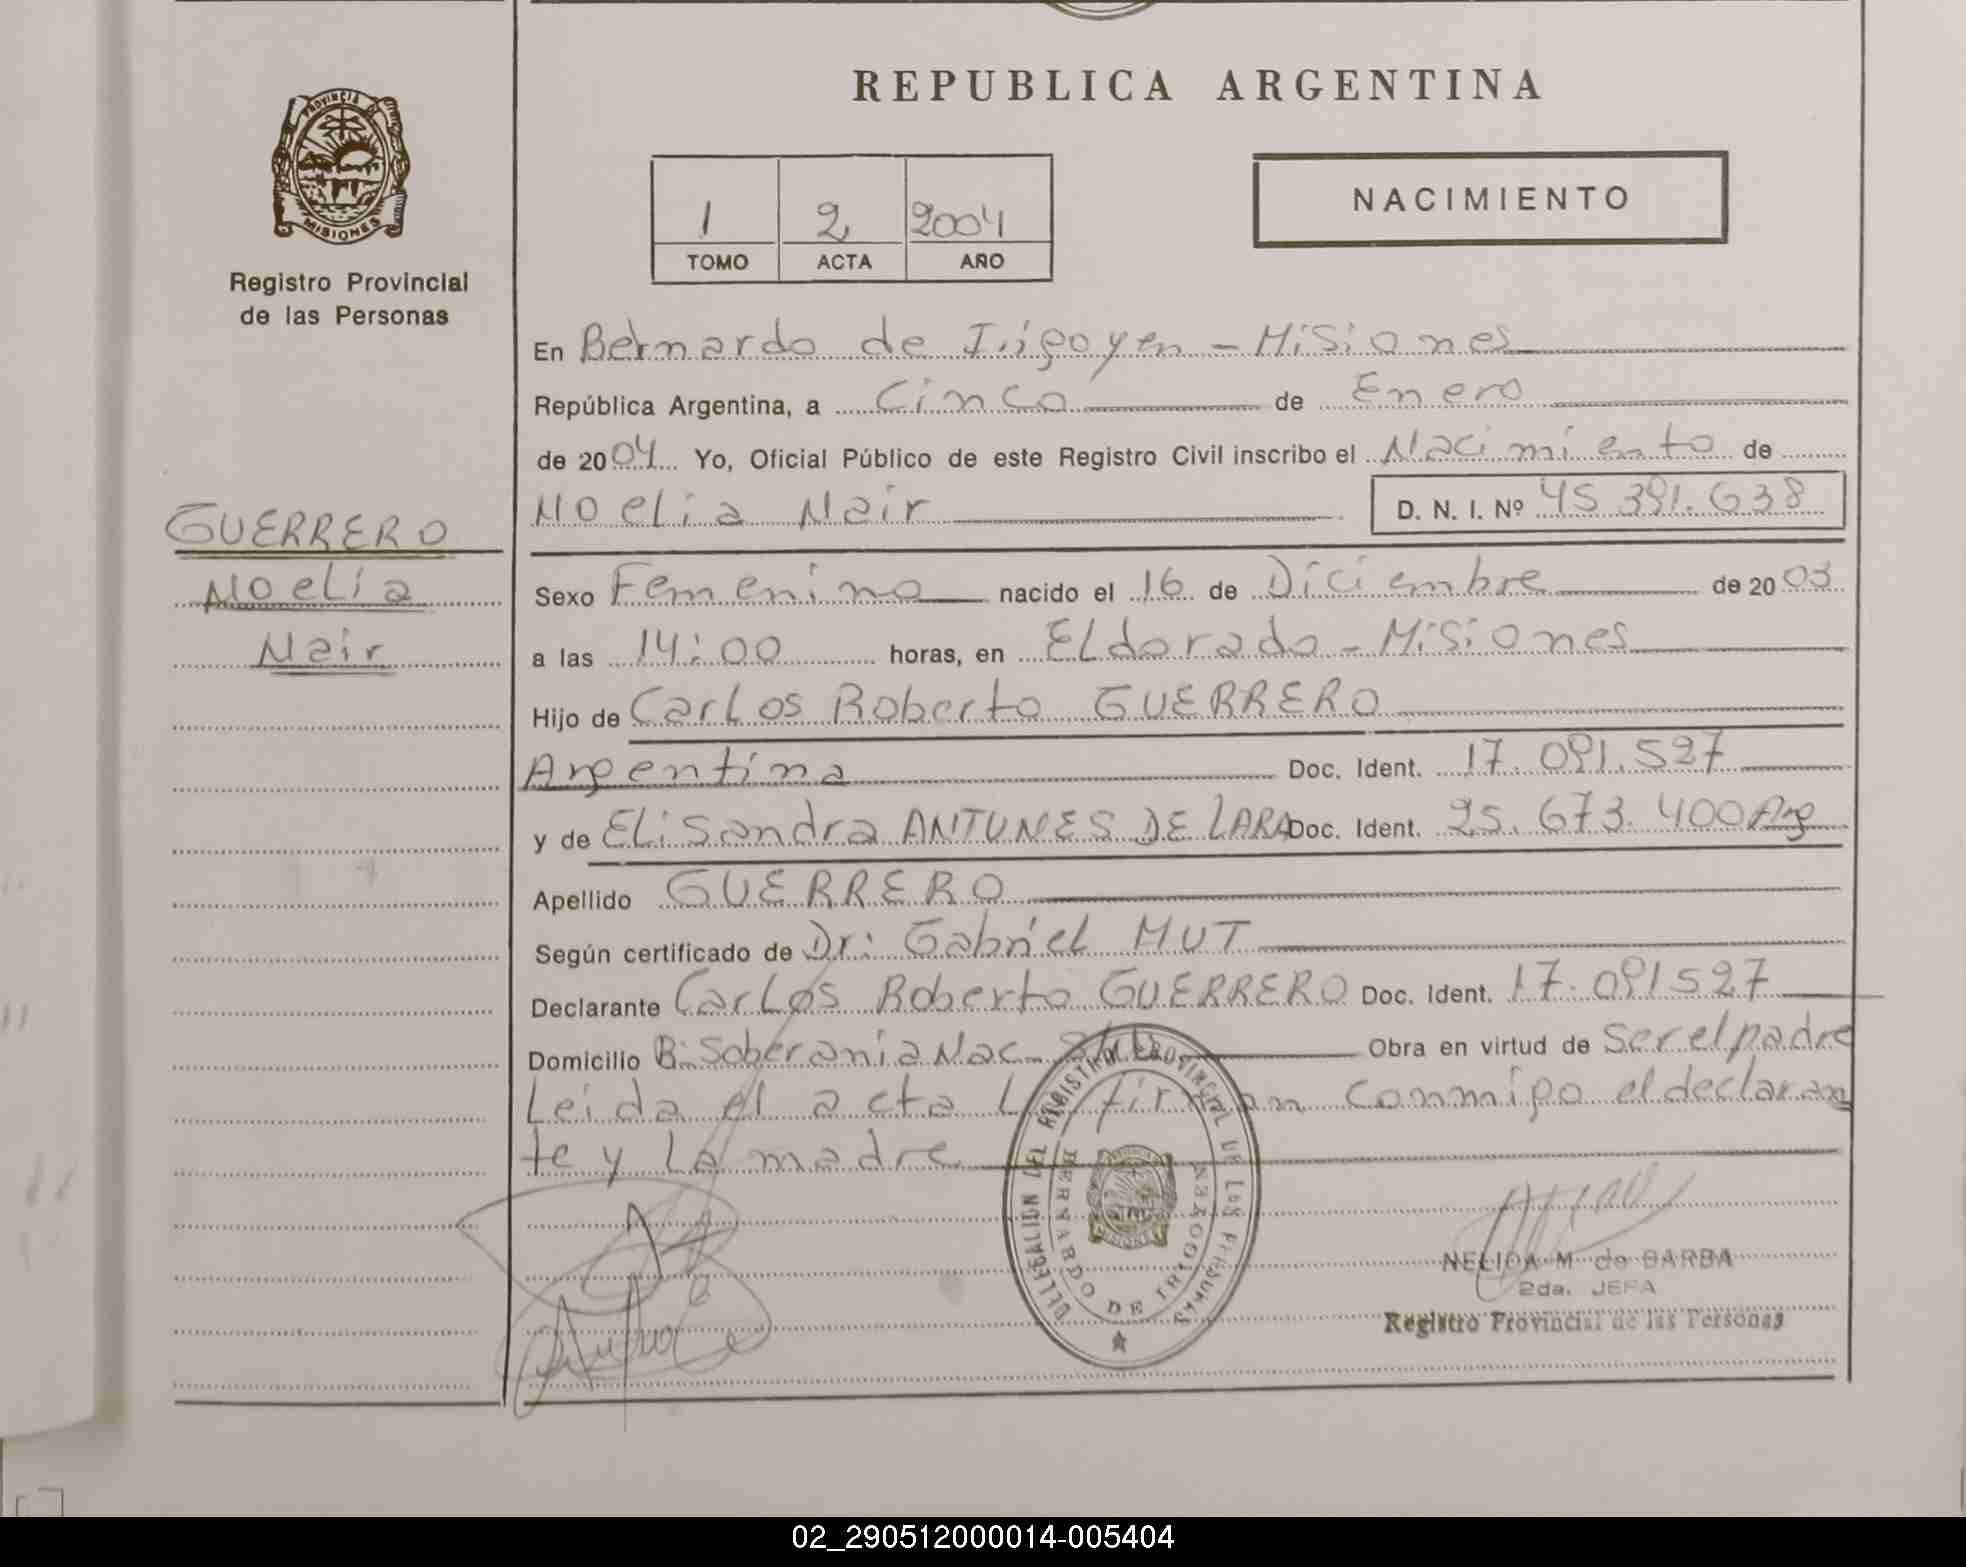 REPUBLICA ARGENTINA
PROVINCIA DE
MISIONES
Registro Provincial
de las Personas
1 2 2004
TOMO ACTA AÑO
NACIMIENTO
En Bernardo de Irigoyen - Misiones
República Argentina, a Cinco de Enero
de 2004 Yo, Oficial Público de este Registro Civil inscribo el Nacimiento de
Noelia Nair D. N. I. Nº 45.391.638
GUERRERO
Noelia
Nair
Sexo Femenino nacido el 16 de Diciembre de 2003
a las 14:00 horas, en Eldorado - Misiones
Hijo de Carlos Roberto GUERRERO
Argentina Doc. Ident. 17.091.527
y de Elisandra ANTUNES DE LARA Doc. Ident. 25.673.400 Arg
Apellido GUERRERO
Según certificado de Dr: Gabriel MUT
Declarante Carlos Roberto GUERRERO Doc. Ident. 17.091527
Domicilio B: Soberania Nac. Obra en virtud de Ser el padre
Leida el acta La firman conmigo el declaran
te y La madre
DELEGACION DEL REGISTRO PROVINCIAL DE LAS PERSONAS
BERNARDO DE IRIGOYEN
NELIDA M. de BARBA
2da. JEFA
Registro Provincial de las Personas
02_290512000014-005404